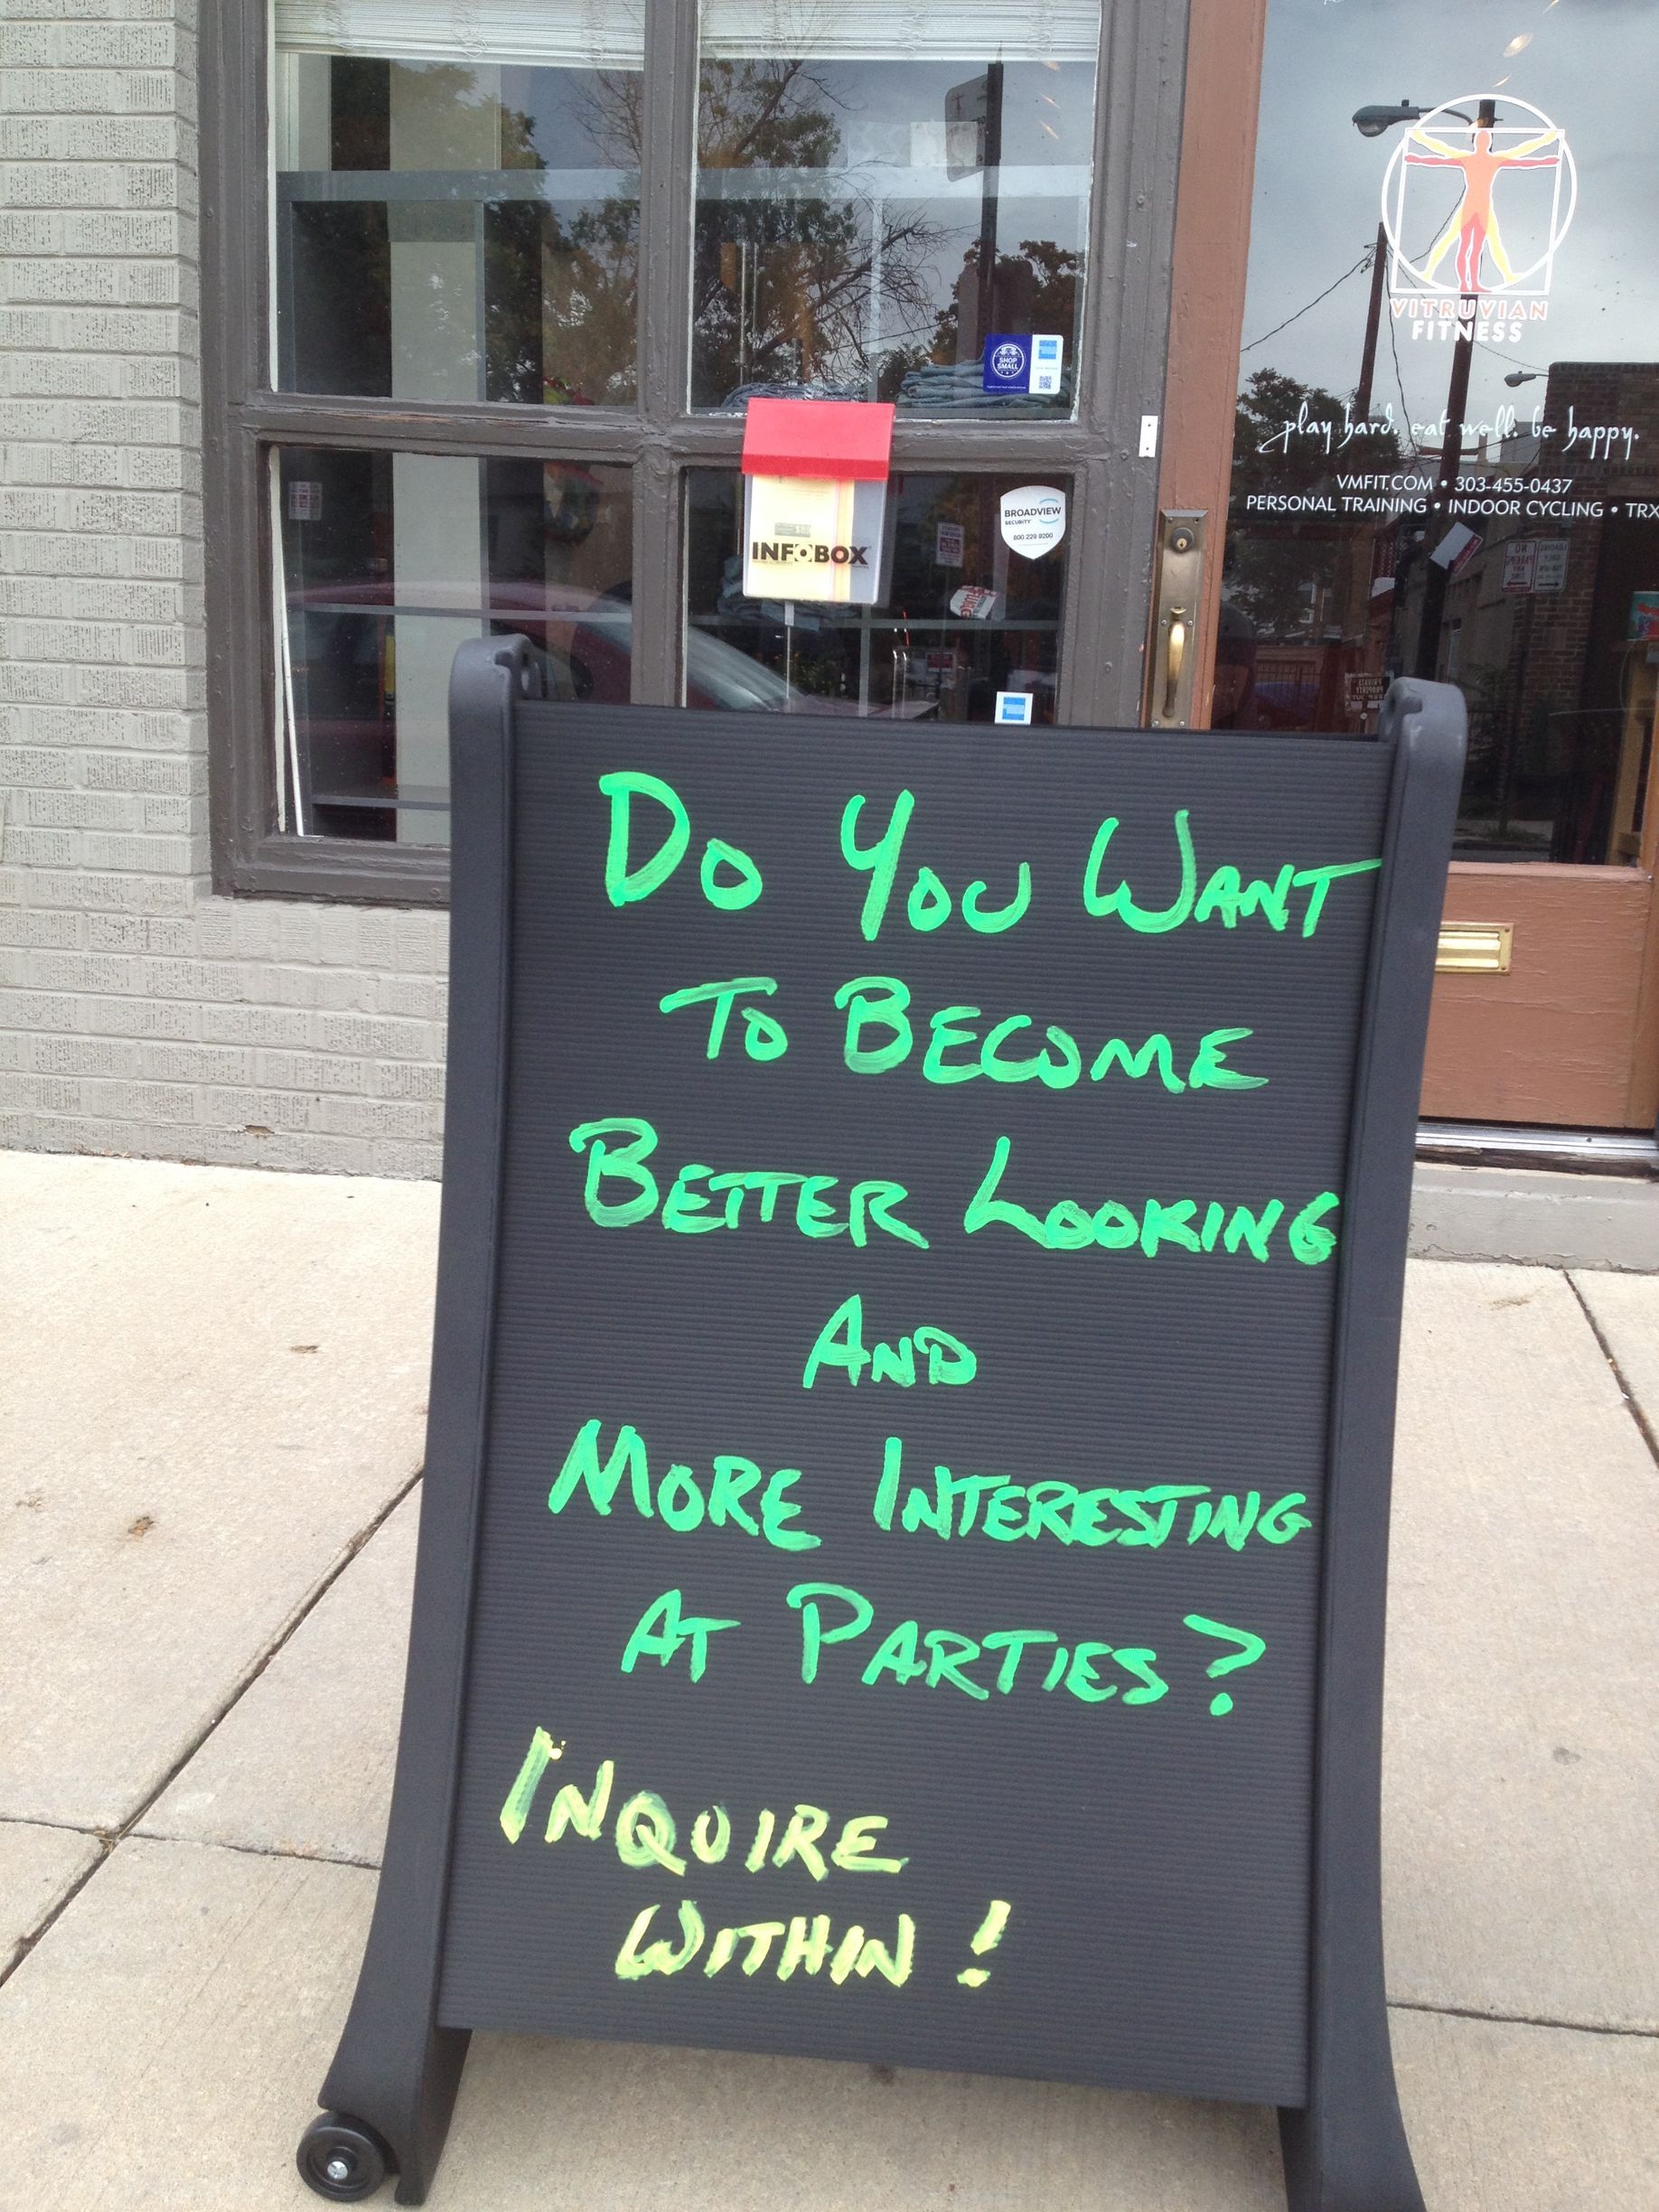 VITRUVIAN
FITNESS
SHOP
SMALL
play hard. eat well. be happy.
VMFIT.COM • 303-455-0437
PERSONAL TRAINING • INDOOR CYCLING • TRX
BROADVIEW
SECURITY
800 229 9200
INFOBOX
DO YOU WANT
TO BECOME
BETTER LOOKING
AND
MORE INTERESTING
AT PARTIES?
INQUIRE
WITHIN!